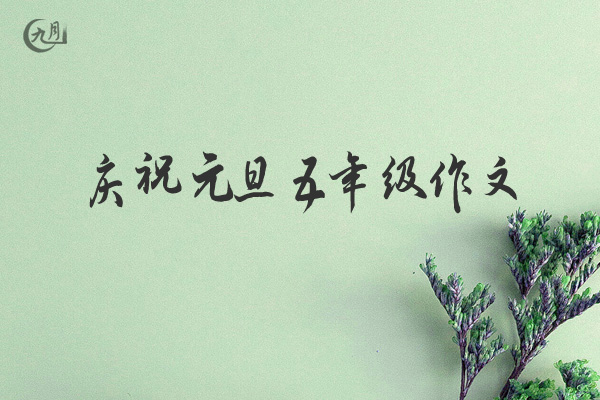 九月
庆祝元旦五年级作文